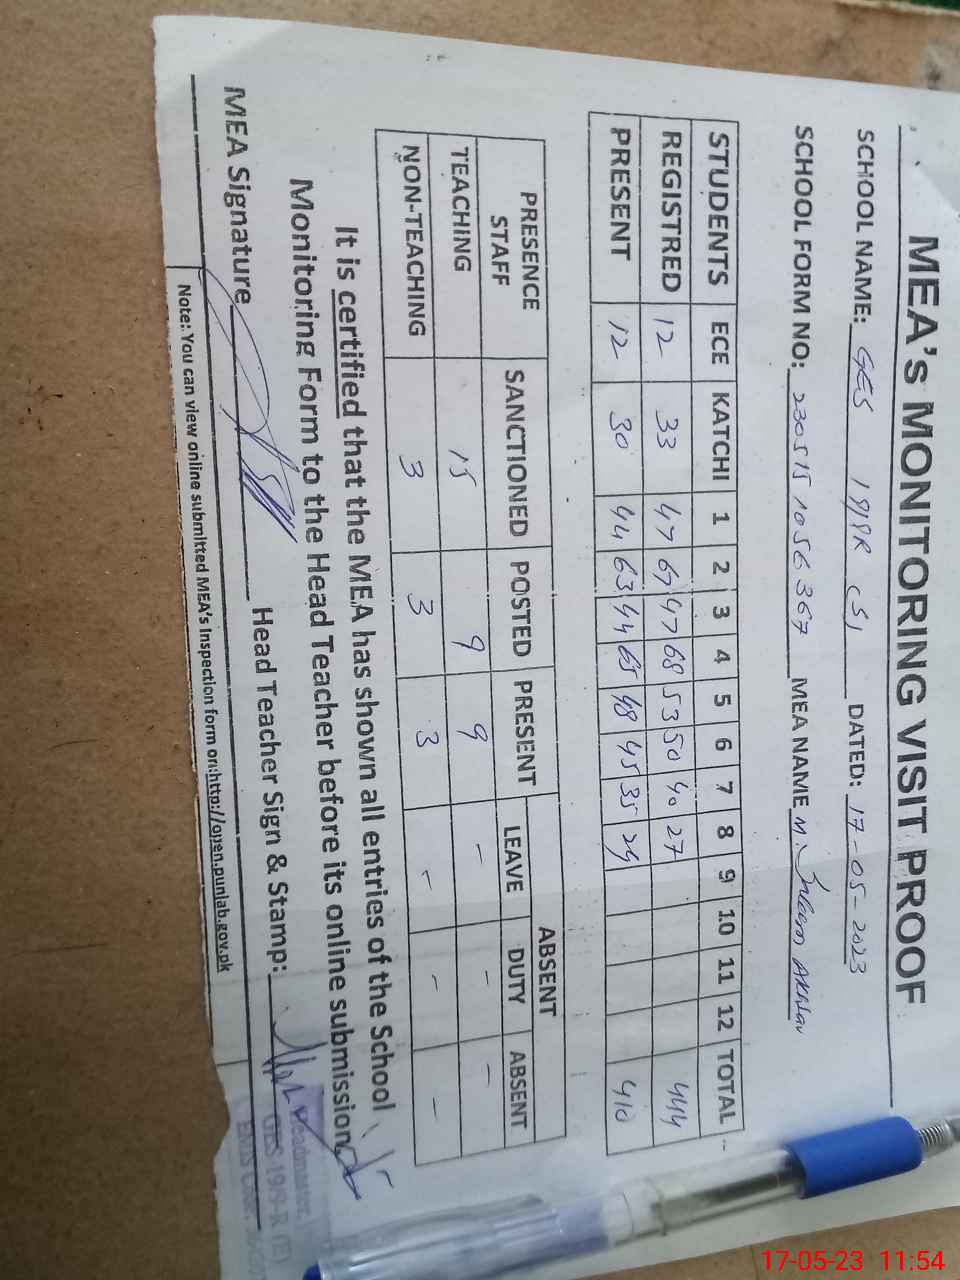 MEA's MONITORING VISIT PROOF
SCHOOL NAME: GES 19/9R (S) DATED: 17-05-2023
SCHOOL FORM NO: 230515 1056367 MEA NAME M. Akhtar
STUDENTS ECE KATCHI 1 2 3 4 5 6 7 8 9 10 11 12 TOTAL
REGISTRED 12 33 47 67 47 68 53 50 40 27 444
PRESENT 12 30 44 63 44 65 48 45 35 24 410
PRESENCE STAFF SANCTIONED POSTED PRESENT ABSENT
LEAVE DUTY ABSENT
TEACHING 15 9 9 - - -
NON-TEACHING 3 3 3 - - -
It is certified that the MEA has shown all entries of the School
Monitoring Form to the Head Teacher before its online submission
MEA Signature Head Teacher Sign & Stamp:
Headmaster
GES 19/9-R (E)
EMIS Code:
Note: You can view online submitted MEA's Inspection form on:http://open.punjab.gov.pk
17-05-23 11:54